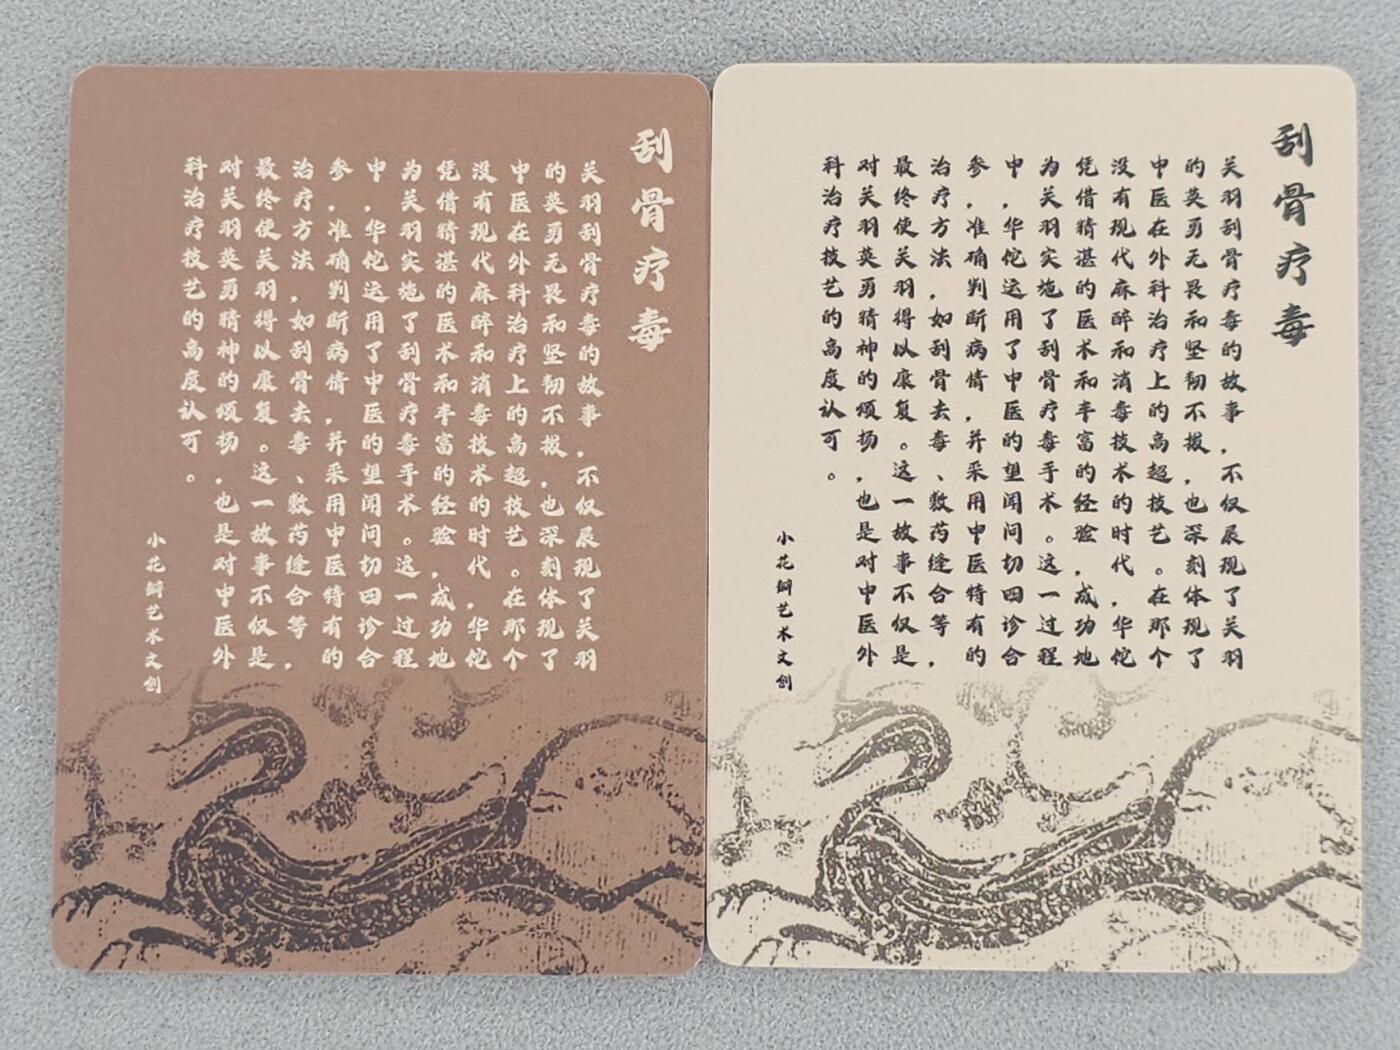 刮骨疗毒
关羽刮骨疗毒的故事，不仅展现了关羽
的英勇无畏和坚韧不拔，也深刻体现了
中医在外科治疗上的高超技艺。在那个
没有现代麻醉和消毒技术的时代，华佗
凭借精湛的医术和丰富的经验，成功地
为关羽实施了刮骨疗毒手术。这一过程
中，华佗运用了中医的望闻问切四诊合
参，准确判断病情，并采用中医特有的
治疗方法，如刮骨去毒、敷药缝合等，
最终使关羽得以康复。这一故事不仅是
对关羽英勇精神的颂扬，也是对中医外
科治疗技艺的高度认可。
小花瓣艺术文创
刮骨疗毒
关羽刮骨疗毒的故事，不仅展现了关羽
的英勇无畏和坚韧不拔，也深刻体现了
中医在外科治疗上的高超技艺。在那个
没有现代麻醉和消毒技术的时代，华佗
凭借精湛的医术和丰富的经验，成功地
为关羽实施了刮骨疗毒手术。这一过程
中，华佗运用了中医的望闻问切四诊合
参，准确判断病情，并采用中医特有的
治疗方法，如刮骨去毒、敷药缝合等，
最终使关羽得以康复。这一故事不仅是
对关羽英勇精神的颂扬，也是对中医外
科治疗技艺的高度认可。
小花瓣艺术文创